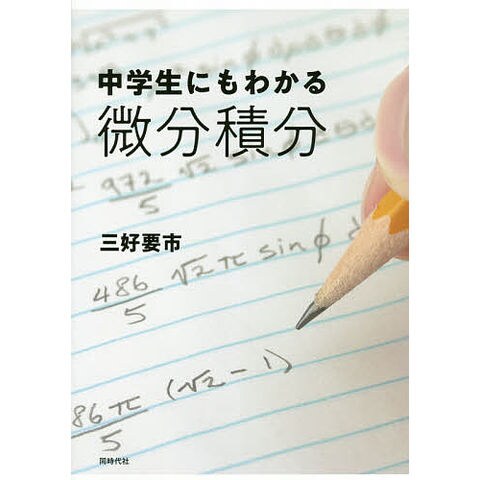 中学生にもわかる
微分積分
972/5 √2
三好要市
486/5 √2 π sin φ
86π/5 (√2 - 1)
同時代社